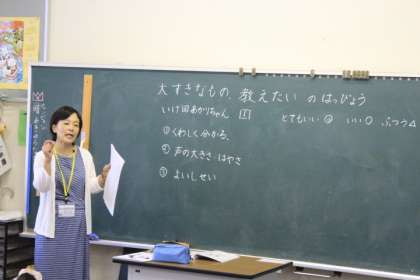 大すきなもの、教えたい のはっぴょう
いけ田あかりちゃん
とてもいい◎ いい○ ふつう△
①くわしく分かる、
②声の大きさ・はやさ
③よいしせい